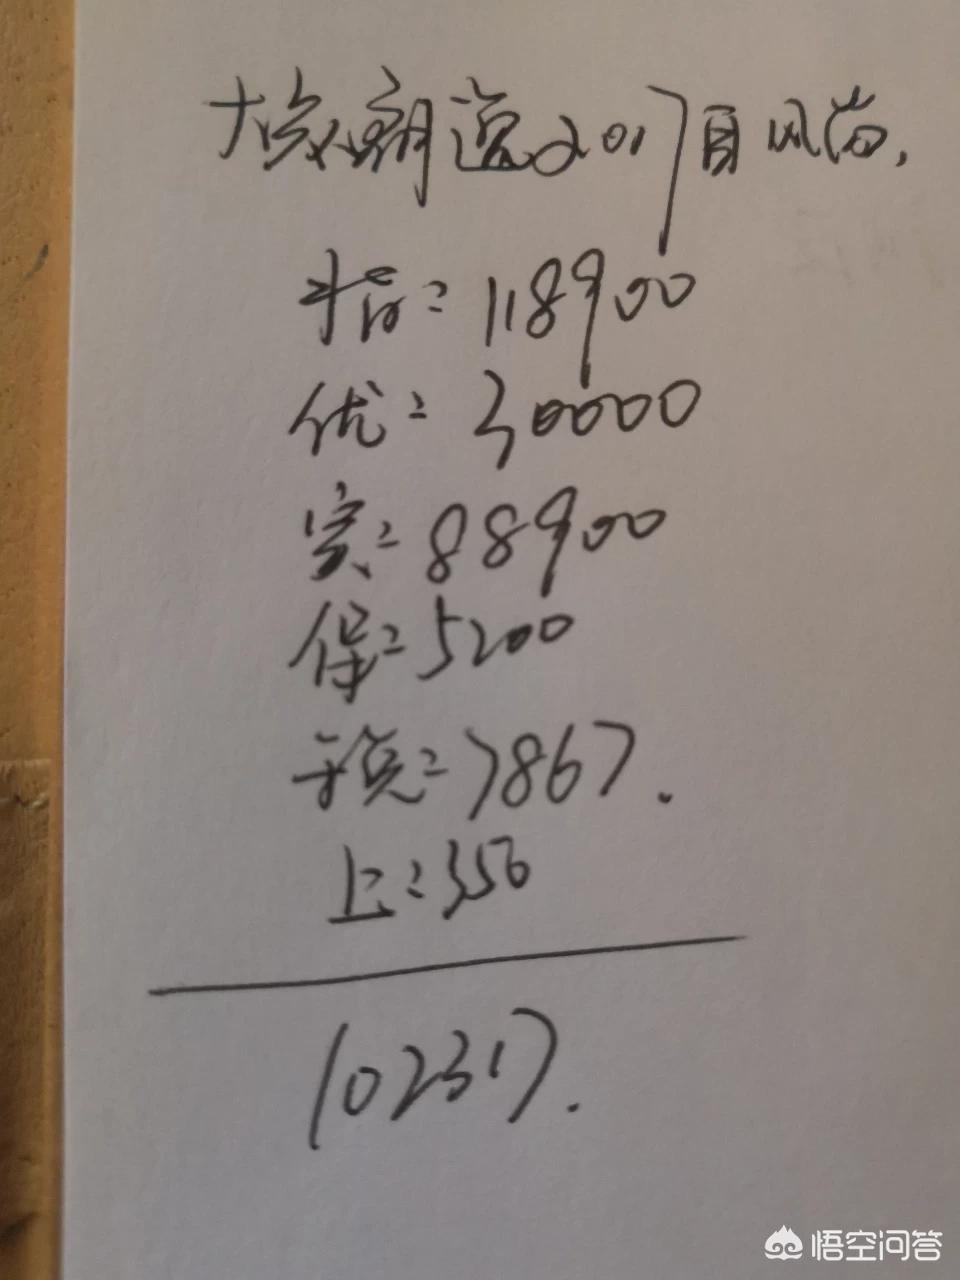 大众朗逸2017自风尚,
指=118900
优=30000
实=88900
保=5200
税=7867.
上=350
102317.
悟空问答